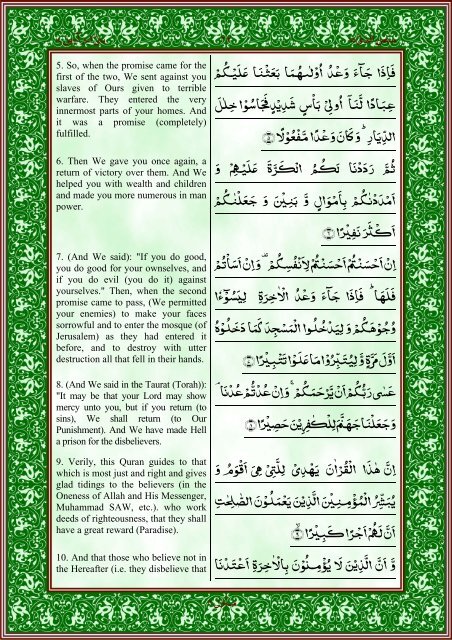 5. So, when the promise came for the
first of the two, We sent against you
slaves of Ours given to terrible
warfare. They entered the very
innermost parts of your homes. And
it was a promise (completely)
fulfilled.
6. Then We gave you once again, a
return of victory over them. And We
helped you with wealth and children
and made you more numerous in man
power.
7. (And We said): "If you do good,
you do good for your ownselves, and
if you do evil (you do it) against
yourselves." Then, when the second
promise came to pass, (We permitted
your enemies) to make your faces
sorrowful and to enter the mosque (of
Jerusalem) as they had entered it
before, and to destroy with utter
destruction all that fell in their hands.
8. (And We said in the Taurat (Torah)):
"It may be that your Lord may show
mercy unto you, but if you return (to
sins), We shall return (to Our
Punishment). And We have made Hell
a prison for the disbelievers.
9. Verily, this Quran guides to that
which is most just and right and gives
glad tidings to the believers (in the
Oneness of Allah and His Messenger,
Muhammad SAW, etc.). who work
deeds of righteousness, that they shall
have a great reward (Paradise).
10. And that those who believe not in
the Hereafter (i.e. they disbelieve that
فَاِذَا جَآءَ وَعْدُ اُوْلٰىهُمَا بَعَثْنَا عَلَيْكُمْ
عِبَادًا لَّنَاۤ اُولِيْ بَاْسٍ شَدِيْدٍ فَجَاسُوْا خِلٰلَ
الدِّيَارِ ؕ وَ كَانَ وَعْدًا مَّفْعُوْلًا ۵
ثُمَّ رَدَدْنَا لَكُمُ الْكَرَّةَ عَلَيْهِمْ وَ
اَمْدَدْنٰكُمْ بِاَمْوَالٍ وَّ بَنِيْنَ وَ جَعَلْنٰكُمْ
اَكْثَرَ نَفِيْرًا ۶
اِنْ اَحْسَنْتُمْ اَحْسَنْتُمْ لِاَنْفُسِكُمْ ۫ وَ اِنْ اَسَاْتُمْ
فَلَهَا ؕ فَاِذَا جَآءَ وَعْدُ الْاٰخِرَةِ لِيَسُوْٓءٗا
وُجُوْهَكُمْ وَ لِيَدْخُلُوا الْمَسْجِدَ كَمَا دَخَلُوْهُ
اَوَّلَ مَرَّةٍ وَّ لِيُتَبِّرُوْا مَا عَلَوْا تَتْبِيْرًا ۷
عَسٰى رَبُّكُمْ اَنْ يَّرْحَمَكُمْ ۚ وَ اِنْ عُدْتُّمْ عُدْنَا ۘ
وَ جَعَلْنَا جَهَنَّمَ لِلْكٰفِرِيْنَ حَصِيْرًا ۸
اِنَّ هٰذَا الْقُرْاٰنَ يَهْدِيْ لِلَّتِيْ هِيَ اَقْوَمُ وَ
يُبَشِّرُ الْمُؤْمِنِيْنَ الَّذِيْنَ يَعْمَلُوْنَ الصّٰلِحٰتِ
اَنَّ لَهُمْ اَجْرًا كَبِيْرًا ۙ ۹
وَّ اَنَّ الَّذِيْنَ لَا يُؤْمِنُوْنَ بِالْاٰخِرَةِ اَعْتَدْنَا